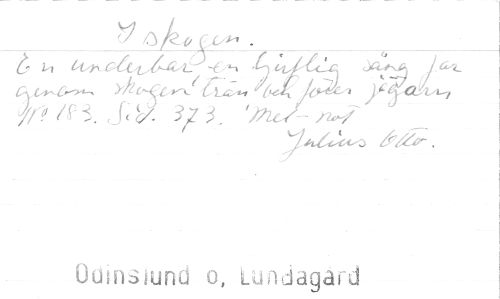 I skogen.
En underbar en ljuflig sång far
genom skogen från och jägarn
No 183. Sid. 373. Mel-not
Julius Otto.
Odinslund o, Lundagård